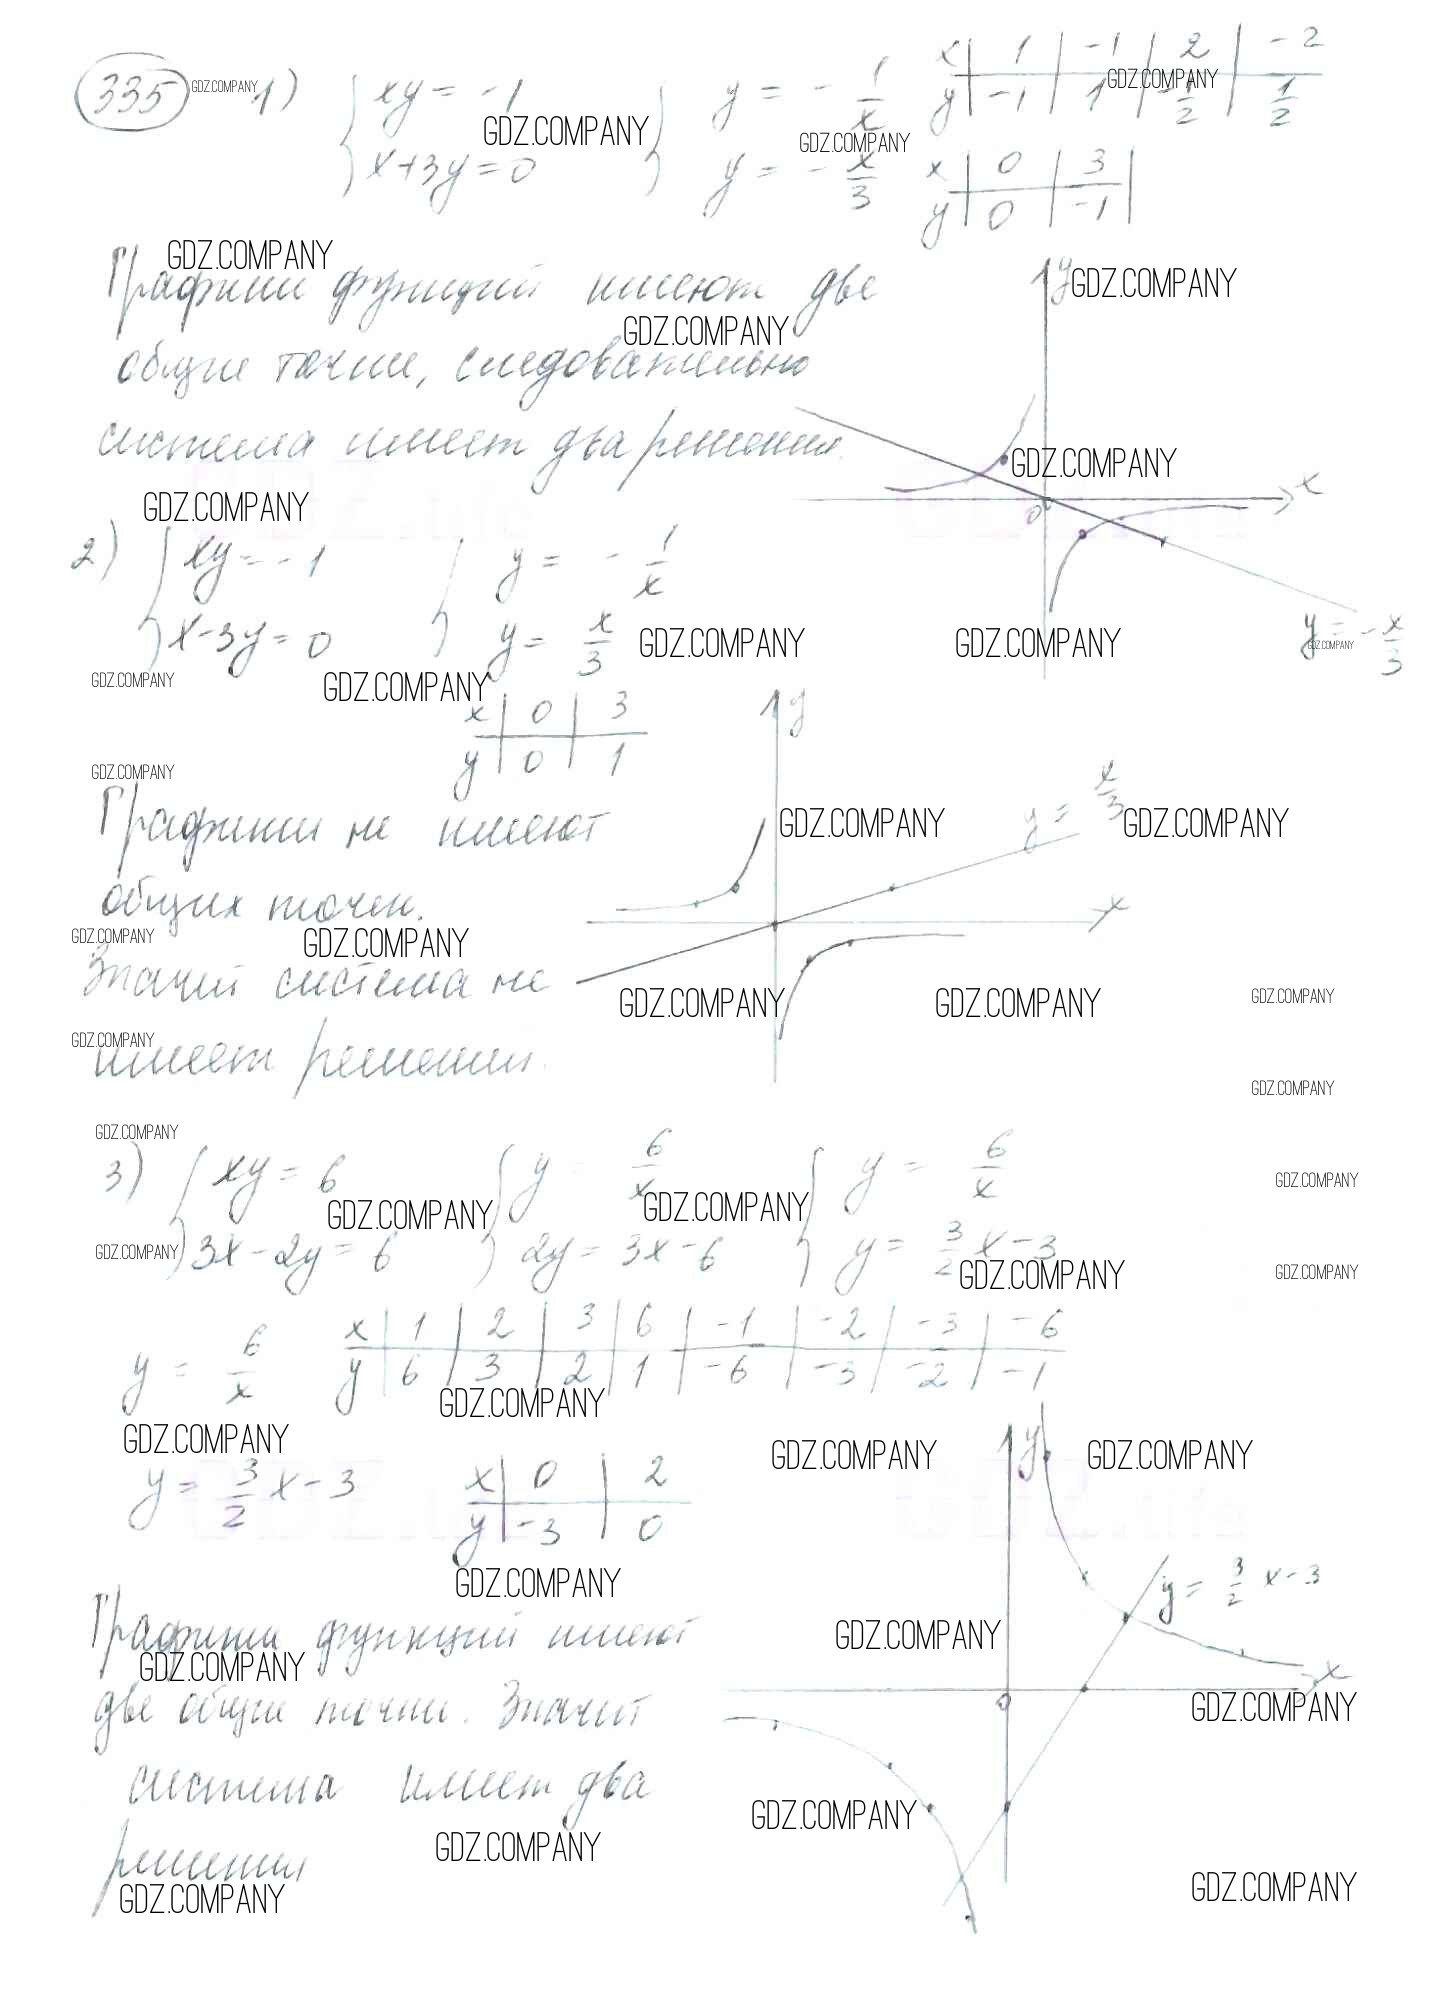 335 1) { xy = -1 { y = - 1/x x | 1 | -1 | 2 | -2
y | -1 | 1 | -1/2 | 1/2
x + 3y = 0 y = - x/3 x | 0 | 3
y | 0 | -1
Графики функций имеют две
общие точки, следовательно
система имеет два решения.
y
x
0
y = - x/3
2) { xy = -1 { y = - 1/x
x - 3y = 0 y = x/3
x | 0 | 3
y | 0 | 1
y
y = x/3
x
Графики не имеют
общих точек.
Значит система не
имеет решения.
3) { xy = 6 { y = 6/x { y = 6/x
3x - 2y = 6 2y = 3x - 6 y = 3/2 x - 3
y = 6/x x | 1 | 2 | 3 | 6 | -1 | -2 | -3 | -6
y | 6 | 3 | 2 | 1 | -6 | -3 | -2 | -1
y = 3/2 x - 3 x | 0 | 2
y | -3 | 0
y
y = 3/2 x - 3
x
0
Графики функций имеют
две общие точки. Значит
система имеет два
решения
GDZ.COMPANY
GDZ.life